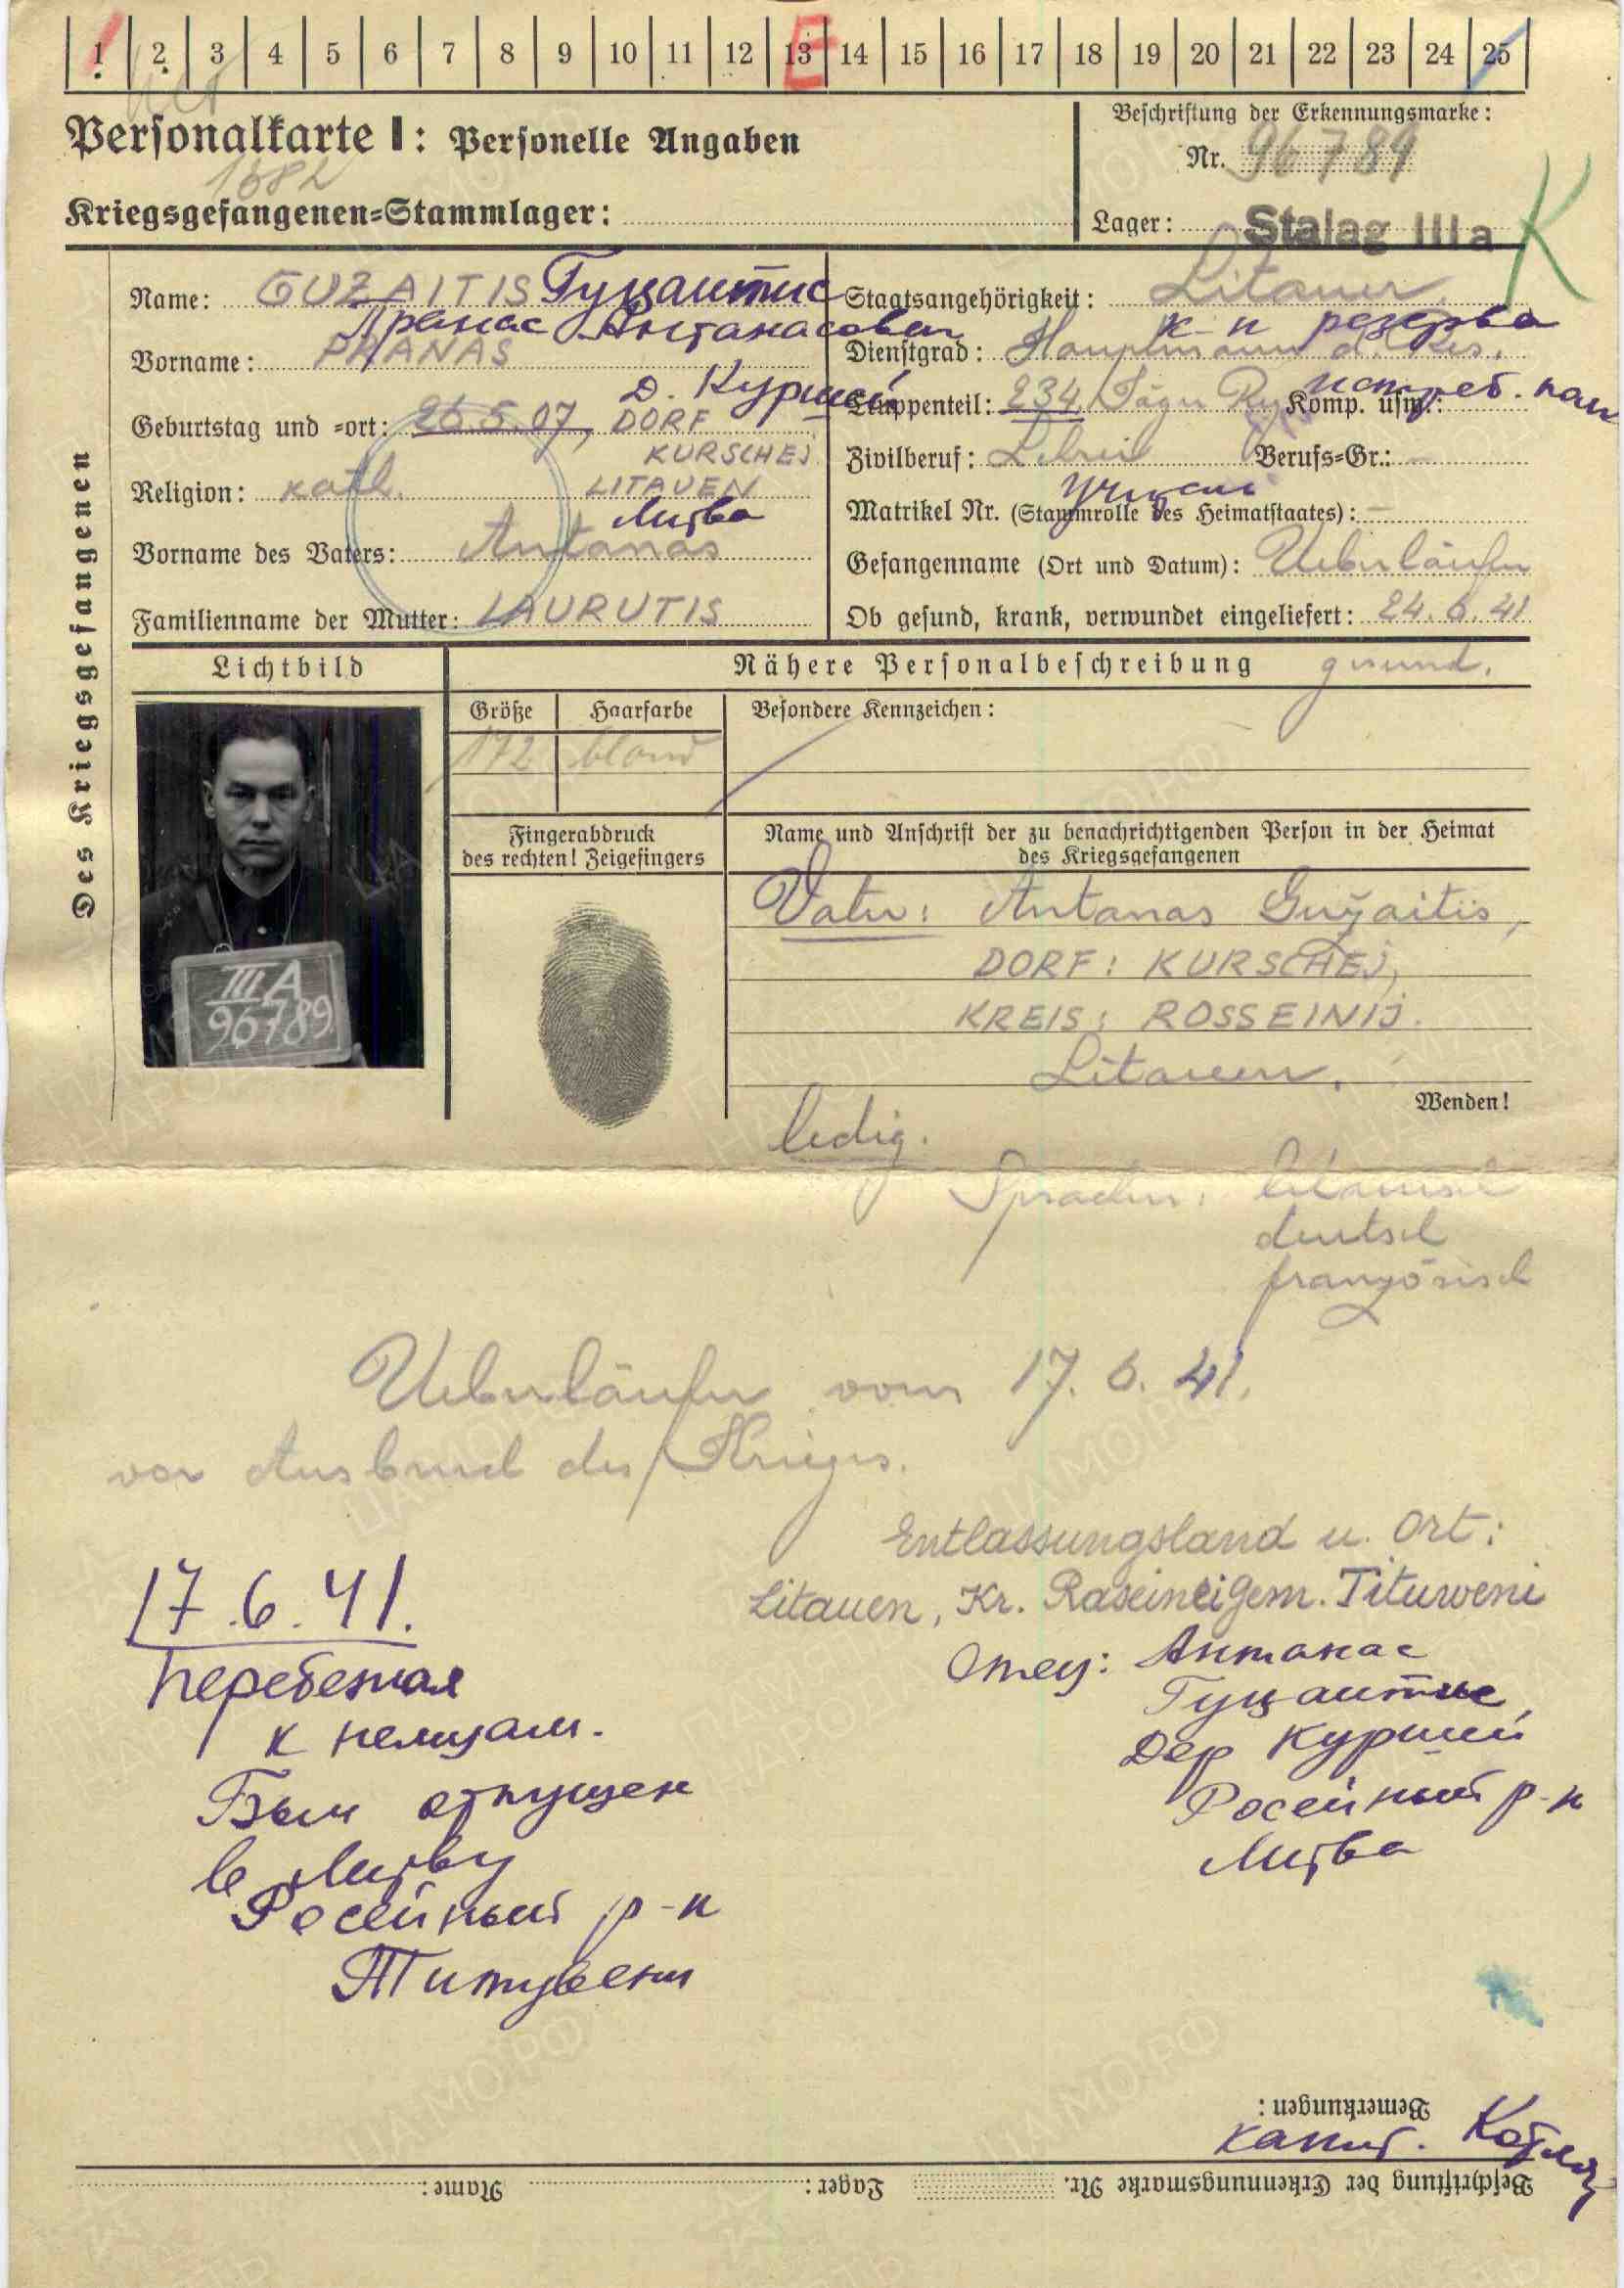 1 2 3 4 5 6 7 8 9 10 11 12 13 14 15 16 17 18 19 20 21 22 23 24 25
E
Personalkarte I: Personelle Angaben
1682
Kriegsgefangenen-Stammlager:
Beschriftung der Erkennungsmarke:
Nr. 96789
Lager: Stalag IIIa
K
Des Kriegsgefangenen
Name: GUŽAITIS Гуцаитис
Пранас Антанасович
Vorname: PRANAS
д. Куршей
Geburtstag und -ort: 26.5.07, DORF
KURSCHEJ
Religion: kath. LITAUEN
Литва
Vorname des Vaters: Antanas
Familienname der Mutter: LAURUTIS
Staatsangehörigkeit: Litauer
к-н резерва
Dienstgrad: Hauptmann d. Res.
Truppenteil: 234 Jäger Komp. usw.:
Zivilberuf: Berufs-Gr.: -
Matrikel Nr. (Stammrolle des Heimatstaates): -
Gefangenname (Ort und Datum): Ueberläufer
Ob gesund, krank, verwundet eingeliefert: 24.6.41
gesund.
Lichtbild
Nähere Personalbeschreibung
Größe Haarfarbe Besondere Kennzeichen:
172 blond
III A
96789
Fingerabdruck
des rechten! Zeigefingers
Name und Anschrift der zu benachrichtigenden Person in der Heimat
des Kriegsgefangenen
Vater: Antanas Gužaitis,
DORF: KURSCHEJ,
KREIS: ROSSEINIJ.
Litauen.
Wenden!
ledig.
Sprachen: litauisch
deutsch
französisch
Ueberläufer vom 17.6.41.
vor Ausbruch des Krieges.
Entlassungsland u. Ort:
Litauen, Kr. Raseinei Gem. Tituweni
17.6.41.
Перебежал
к немцам.
Был отпущен
в Литву
Росейный р-н
Титувени
Отец: Антанас
Гуцаитис,
Дер Куршей
Росейный р-н
Литва
Bemerkungen:
капит.
Beschriftung der Erkennungsmarke Nr. Lager: Name:
ЦАМО.РФ